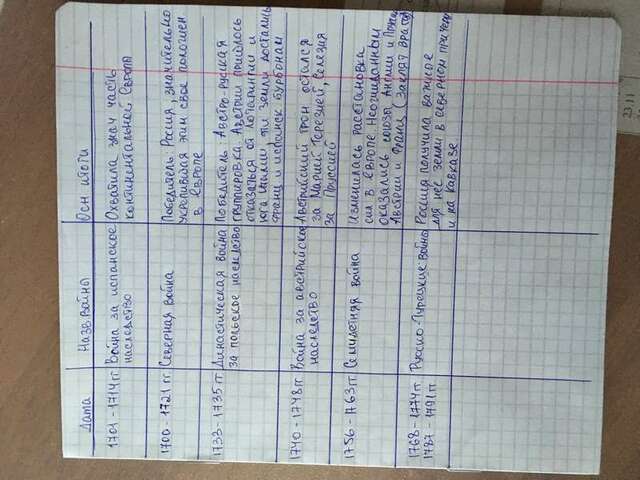 Дата Назв. войны Осн итоги
1701-1714 гг Война за испанское наследство Охватила знач часть
континентальной Европы
1700-1721 гг. Северная война Победитель: Россия, значительно
укрепившая этим свое положен
в Европе
1733-1735 гг Династическая война за польское наследство Победитель: Австро-русская
группировка. Австрии пришлось
отказаться от Лотарингии и
юга Италии, эти земли достались
франц и испанск Бурбонам
1740-1748 гг Война за австрийское наследство Австрийский трон остался
за Марией Терезией, Селезия
за Пруссией
1756-1763 гг. Семилетняя война Изменилась расстановка
сил в Европе. Неожиданным
оказались союзы Англии и
Австрии и Франц (заклят врагов)
1768-1774 гг
1787-1791 гг. Русско-Турецкие войны Россия получила важное
для нее земли в северном
и на Кавказе.
23.11